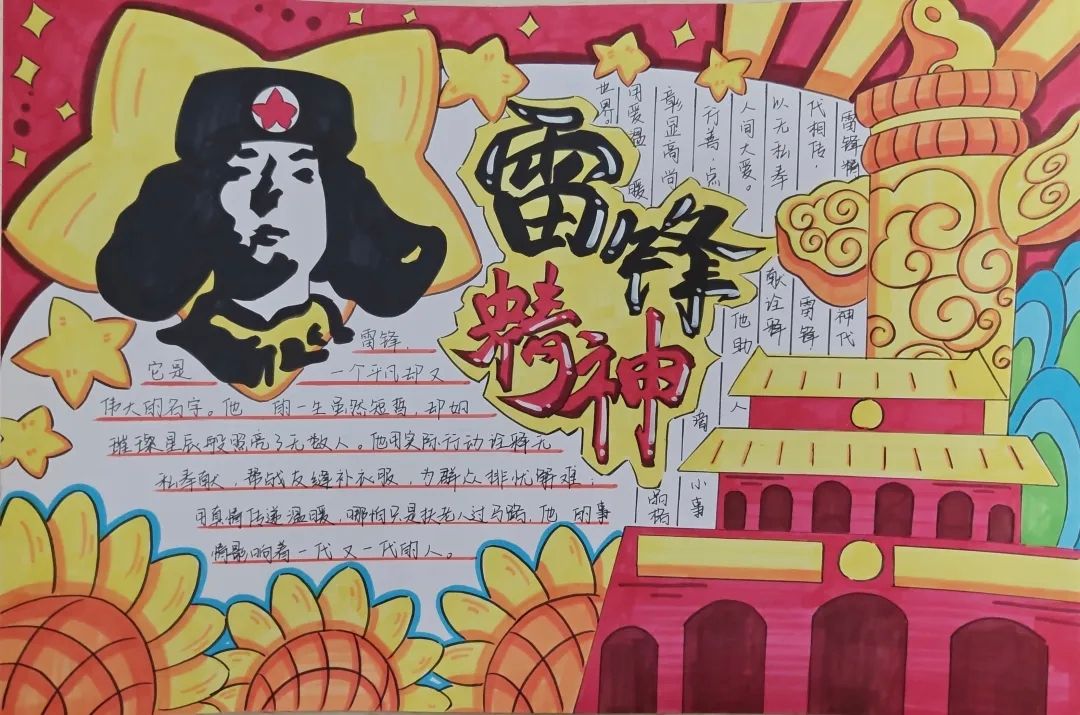 雷锋
精神
雷锋,
它是 一个平凡却又
伟大的名字。他 的一生虽然短暂,却如
璀璨星辰般照亮了无数人。他用实际行动诠释无
私奉献,帮战友缝补衣服,为群众排忧解难;
用真情传递温暖,哪怕只是扶老人过马路,他 的事
情影响着一代又一代的人。
雷锋精 神代
代相传, 雷锋
以无私奉 献诠释
人间大爱。 他助 人
行善,点 小事
彰显高尚 格
用爱温 暖
世界。